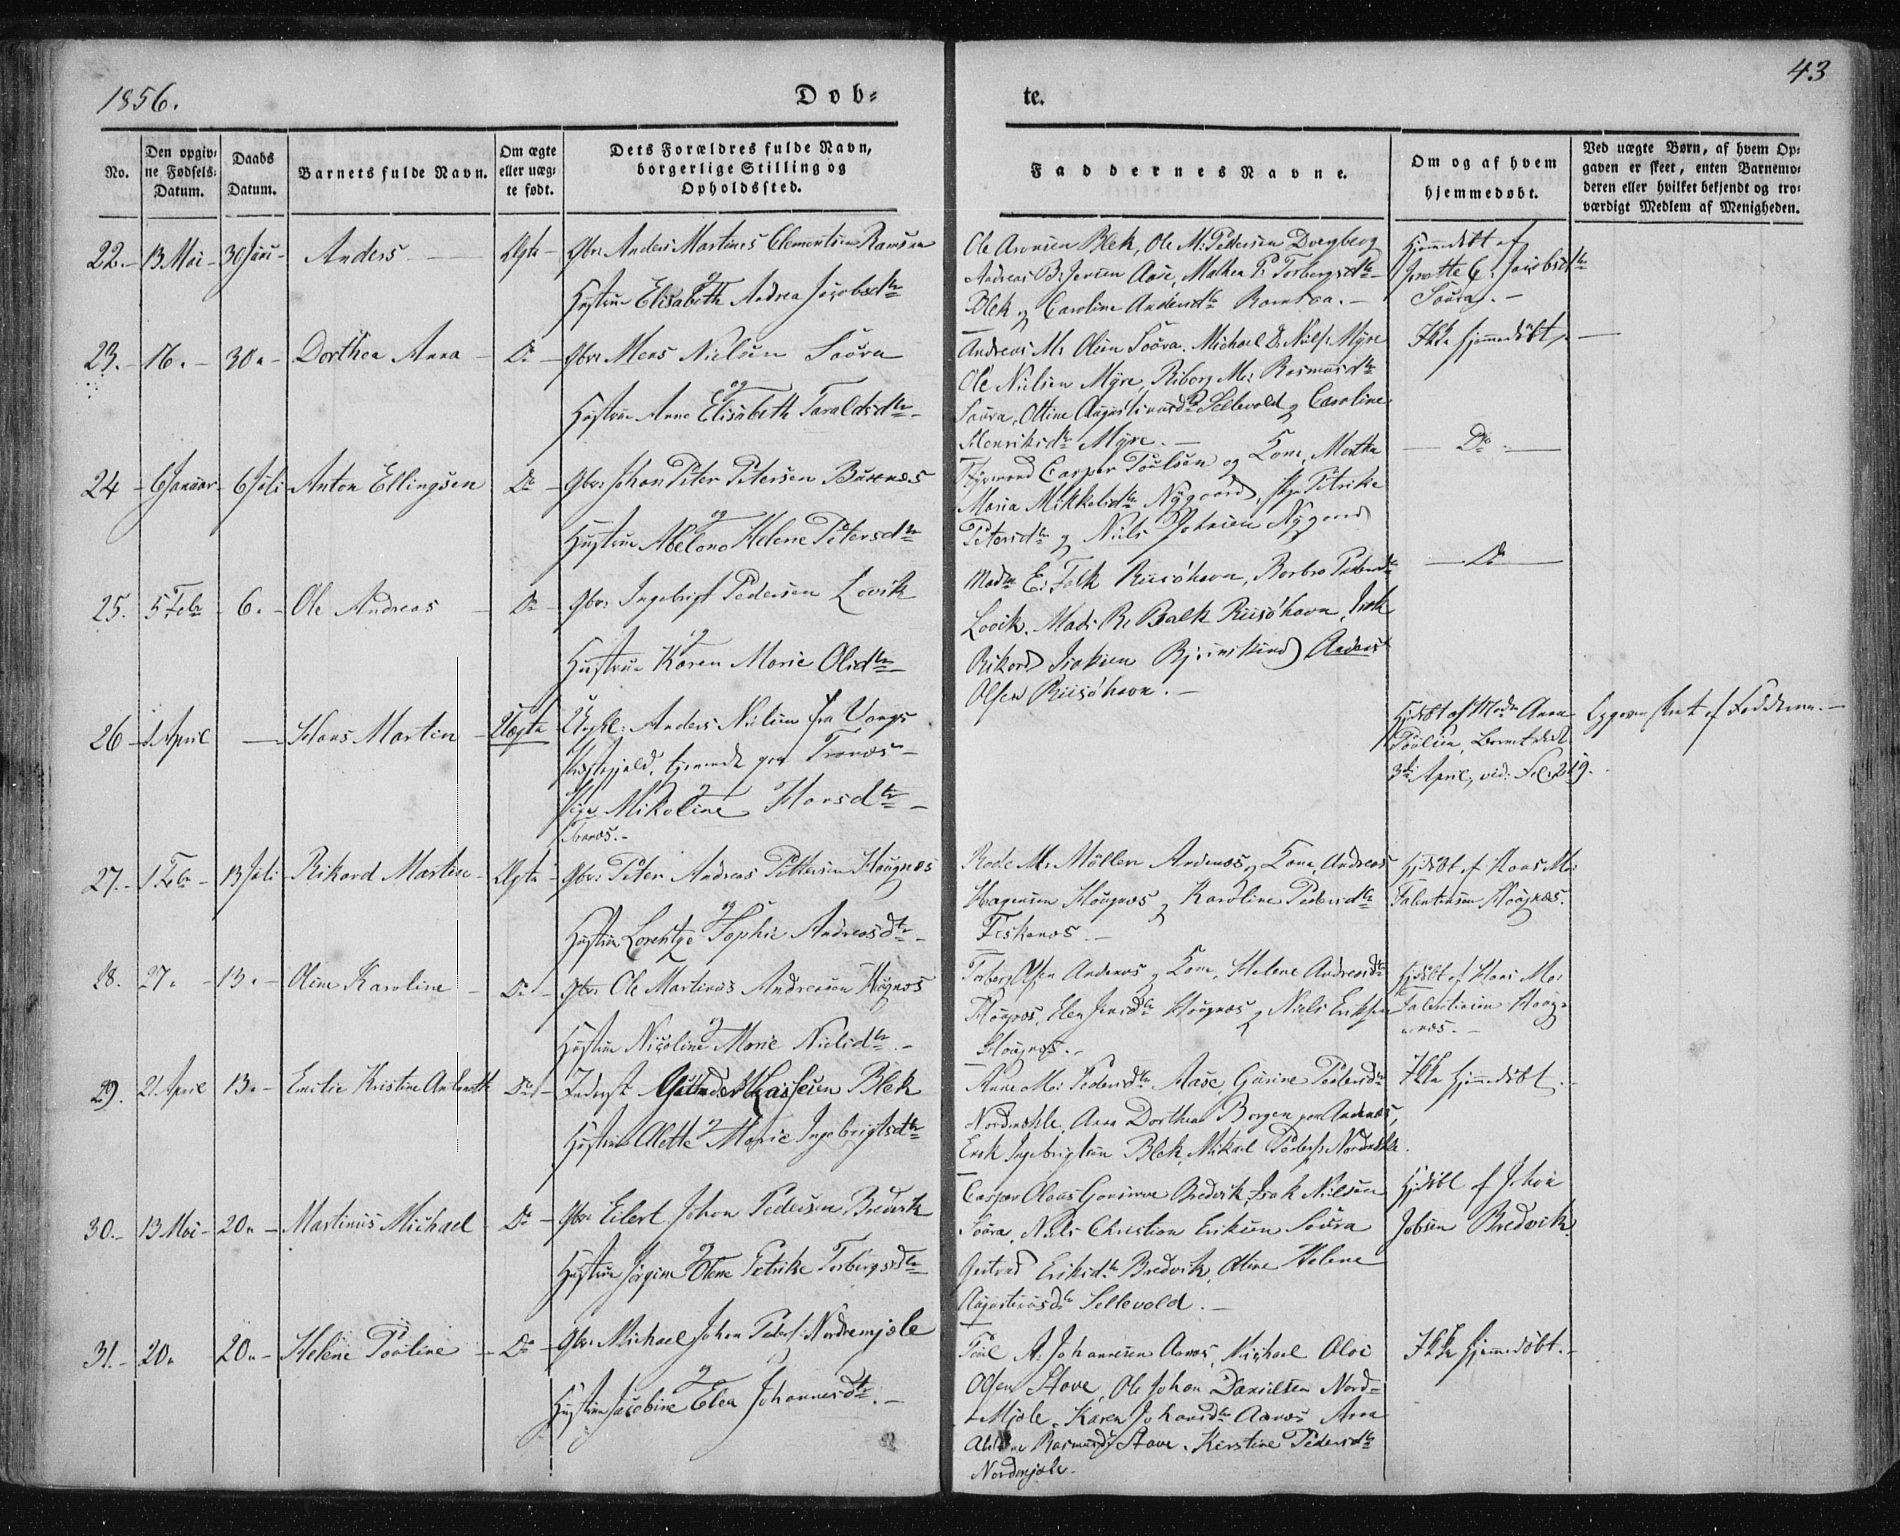 1856.
Døb-
te.
43
No.
Den opgiv-
ne Fødsels-
Datum.
Daabs
Datum.
Barnets fulde Navn.
Om ægte
eller uæg-
te født.
Dets Forældres fulde Navn,
borgerlige Stilling og
Opholdssted.
Faddernes Navne.
Om og af hvem
hjemmedøbt.
Ved uægte Børn, af hvem Op-
gaven er skeet, enten Barnemo-
deren eller hvilket bekjendt og tro-
værdigt Medlem af Menigheden.
22. 13 Mai 30 Juni Anders Ægte Gbr: Anders Martinus Clementsen Ramsaa
og
Hustrue Elisabeth Andrea Jacobsdtr
Ole Aronsen Blek, Ole M: Pettersen Dvergberg
Andreas B: Jensen Aase, Mathea P: Torbergsdtr
Blek og Caroline Andersdtr Ramsaa.
Hjemmedøbt af
Grethe C: Jacobsdtr
Soura.
23. 16. 30 Dorthea Anna Do Gbr: Mens Nielsen Soura
og
Hustrue Anne Elisabeth Taraldsdtr
Andreas M: Olsen Soura. Michael D: Niels: Myre
Ole Nielsen Myre, Riborg M: Rasmusdtr
Soura, Ottine Augustinusdtr Sellevold og Caroline
Henriksdtr Myre.
Ikke hjemmedøbt.
24 6 Januar 6 Juli Anton Ellingsen Do Gbr: Johan Peter Petersen Buknæs
og
Hustrue Abelone Helene Petersdtr
Casper Poulsen og Kone, Martha
Maria Mikkelsdtr Nygaard, Pge Petrike
Petersdtr og Niels Johnsen Nygaard
Do
25. 5 Febr 6. Ole Andreas Do Gbr: Ingebrigt Pedersen Lovik
og
Hustrue Karen Marie Olsdtr
Madm E: Falk Riisøhavn, Barbro Pedersdtr
Lovik. Mads R: Balk Riisøhavn, Isak
Rikard Isaksen Bjørnskind Anders
Olsen Riisøhavn.
Do
26 1 April Hans Martin Uægte Ungkl: Anders Nielsen fra Vangs
Præstegjeld, tjenende paa Tranæs
og
Pige Mikoline Hansdtr
Tranæs.
Hjdøbt af Madm Anna
Poulsen, Barnet død
3de April, vid: Fol: 219.
Opgaven skeet af Fadderne.
27. 1 Febr 13 Juli Rikard Martin Ægte Gbr: Peter Andreas Pettersen Haugnæs
og
Hustrue Lorentze Sophie Andreasdtr
Rode M: Møller Andenæs og Kone, Andreas
Hagensen Haugnæs og Karoline Pedersdtr
Fiskenæs.
Hjdøbt af Hans M:
Falentinsen Haugnæs.
28. 27. 13. Oline Karoline Do Gbr: Ole Martinus Andreasen Haugnæs
og
Hustrue Nicoline Marie Nielsdtr
Torberg Olsen Andenæs og Kone, Helene Andreasdtr
Haugnæs, Elen Jensdtr Haugnæs og Niels Eriksen
Haugnæs.
Hjdøbt af Hans M:
Falentinsen Haug-
næs.
29. 21 April 13. Emilie Kristine Anbenoth Do Inderst Blek
og
Hustrue Alette Marie Ingebrigtsdtr
Anne M: Pedersdtr Aase, Gurine Pedersdtr
Nordmjele, Ane Dorthea Borgen paa Andenæs,
Erik Ingebrigtsen Blek, Mikael Peders: Nordmjele.
Ikke hjemmedøbt.
30. 13 Mai 20. Martinus Michael Do Gbr: Eilert Johan Pedersen Bredvik
og
Hustrue Jørgine Olene Petrike Torbergsdtr
Casper Olaus Bredvik, Isak Nielsen
Soura, Niels Christian Eriksen Soura
Gertrud Eriksdtr Bredvik, Oline Helene
Augustinusdtr Sellevold.
Hjdøbt af Johan
Jakobsen Bredvik.
31. 20. 20. Helene Pauline Do Gbr: Michael Johan Peders: Nordremjele
og
Hustrue Jacobine Elen Johannesdtr.
Poul A: Johannesen Aanæs, Michael Olai
Olsen Stave, Ole Johan Danielsen Nord-
Mjele, Karen Johansdtr Aanæs Ane
Rasmusdtr Stave, Kirstine Pedersdtr
Nordmjele.
Ikke hjemmedøbt.